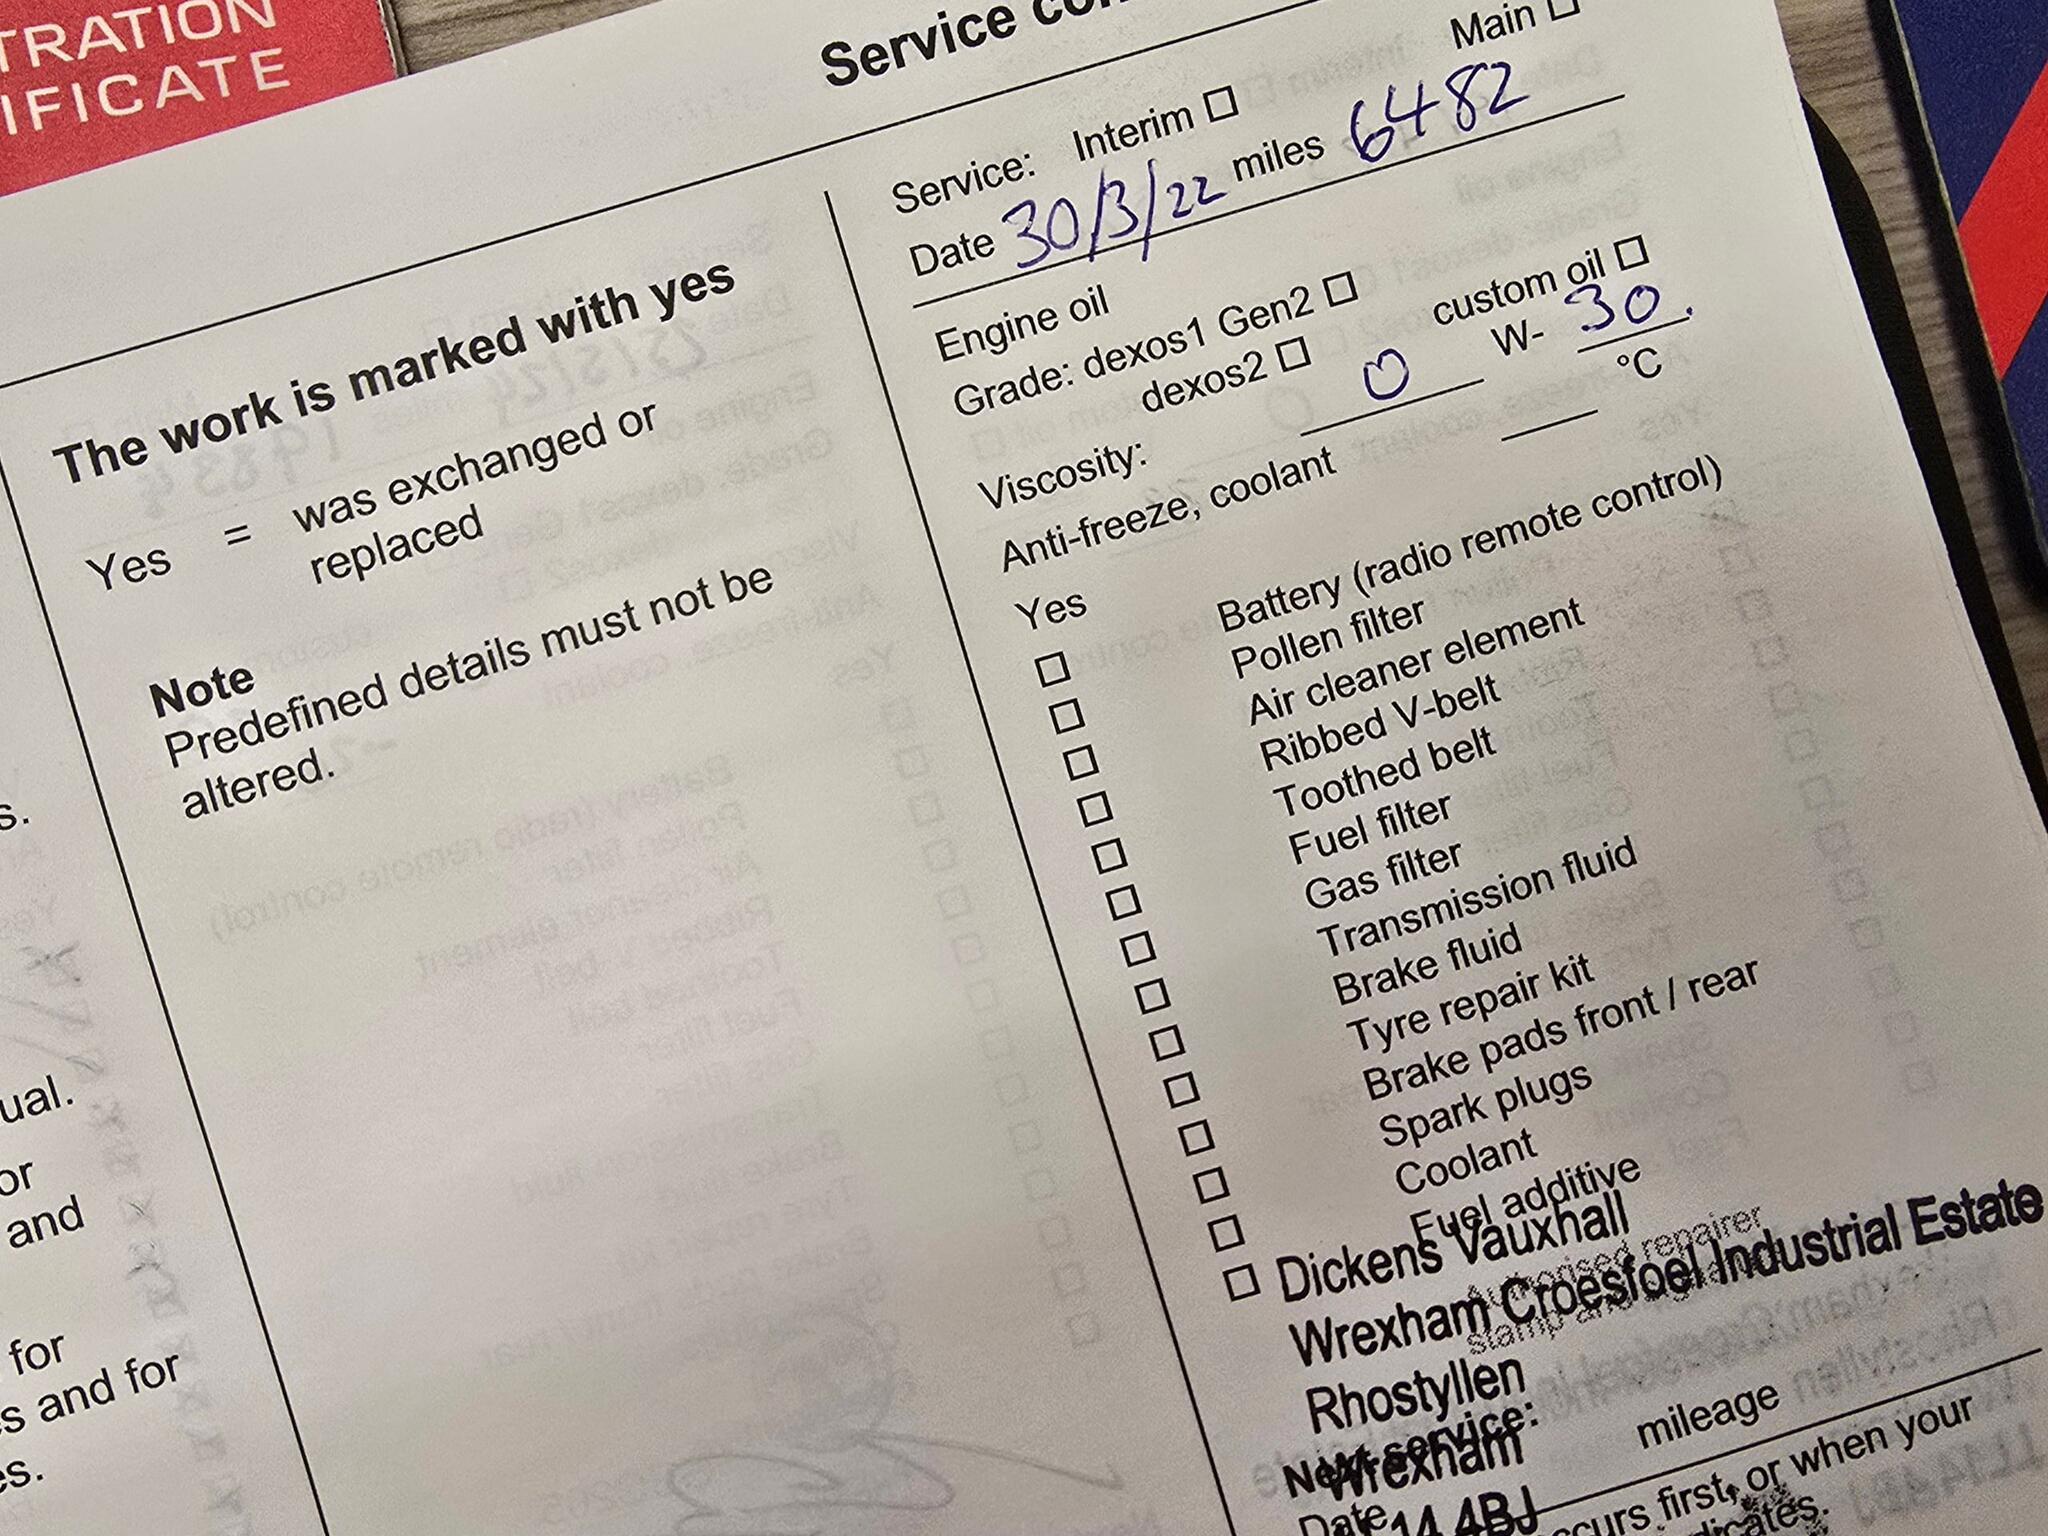 TRATION
IFICATE
Service
The work is marked with yes
Yes = was exchanged or
replaced
Note
Predefined details must not be
altered.
s.
ual.
or
and
for
s and for
es.
Service: Interim ☐ Main ☐
Date 30/3/22 miles 6482
Engine oil
Grade: dexos1 Gen2 ☐ custom oil ☐
dexos2 ☐
Viscosity: 0 W- 30.
Anti-freeze, coolant °C
Yes
☐ Battery (radio remote control)
☐ Pollen filter
☐ Air cleaner element
☐ Ribbed V-belt
☐ Toothed belt
☐ Fuel filter
☐ Gas filter
☐ Transmission fluid
☐ Brake fluid
☐ Tyre repair kit
☐ Brake pads front / rear
☐ Spark plugs
☐ Coolant
☐ Fuel additive
Dickens Vauxhall
Authorised repairer
Wrexham Croesfoel Industrial Estate
stamp
Rhostyllen
Next service:
Wrexham
mileage
Date
14 4BJ
occurs first, or when your